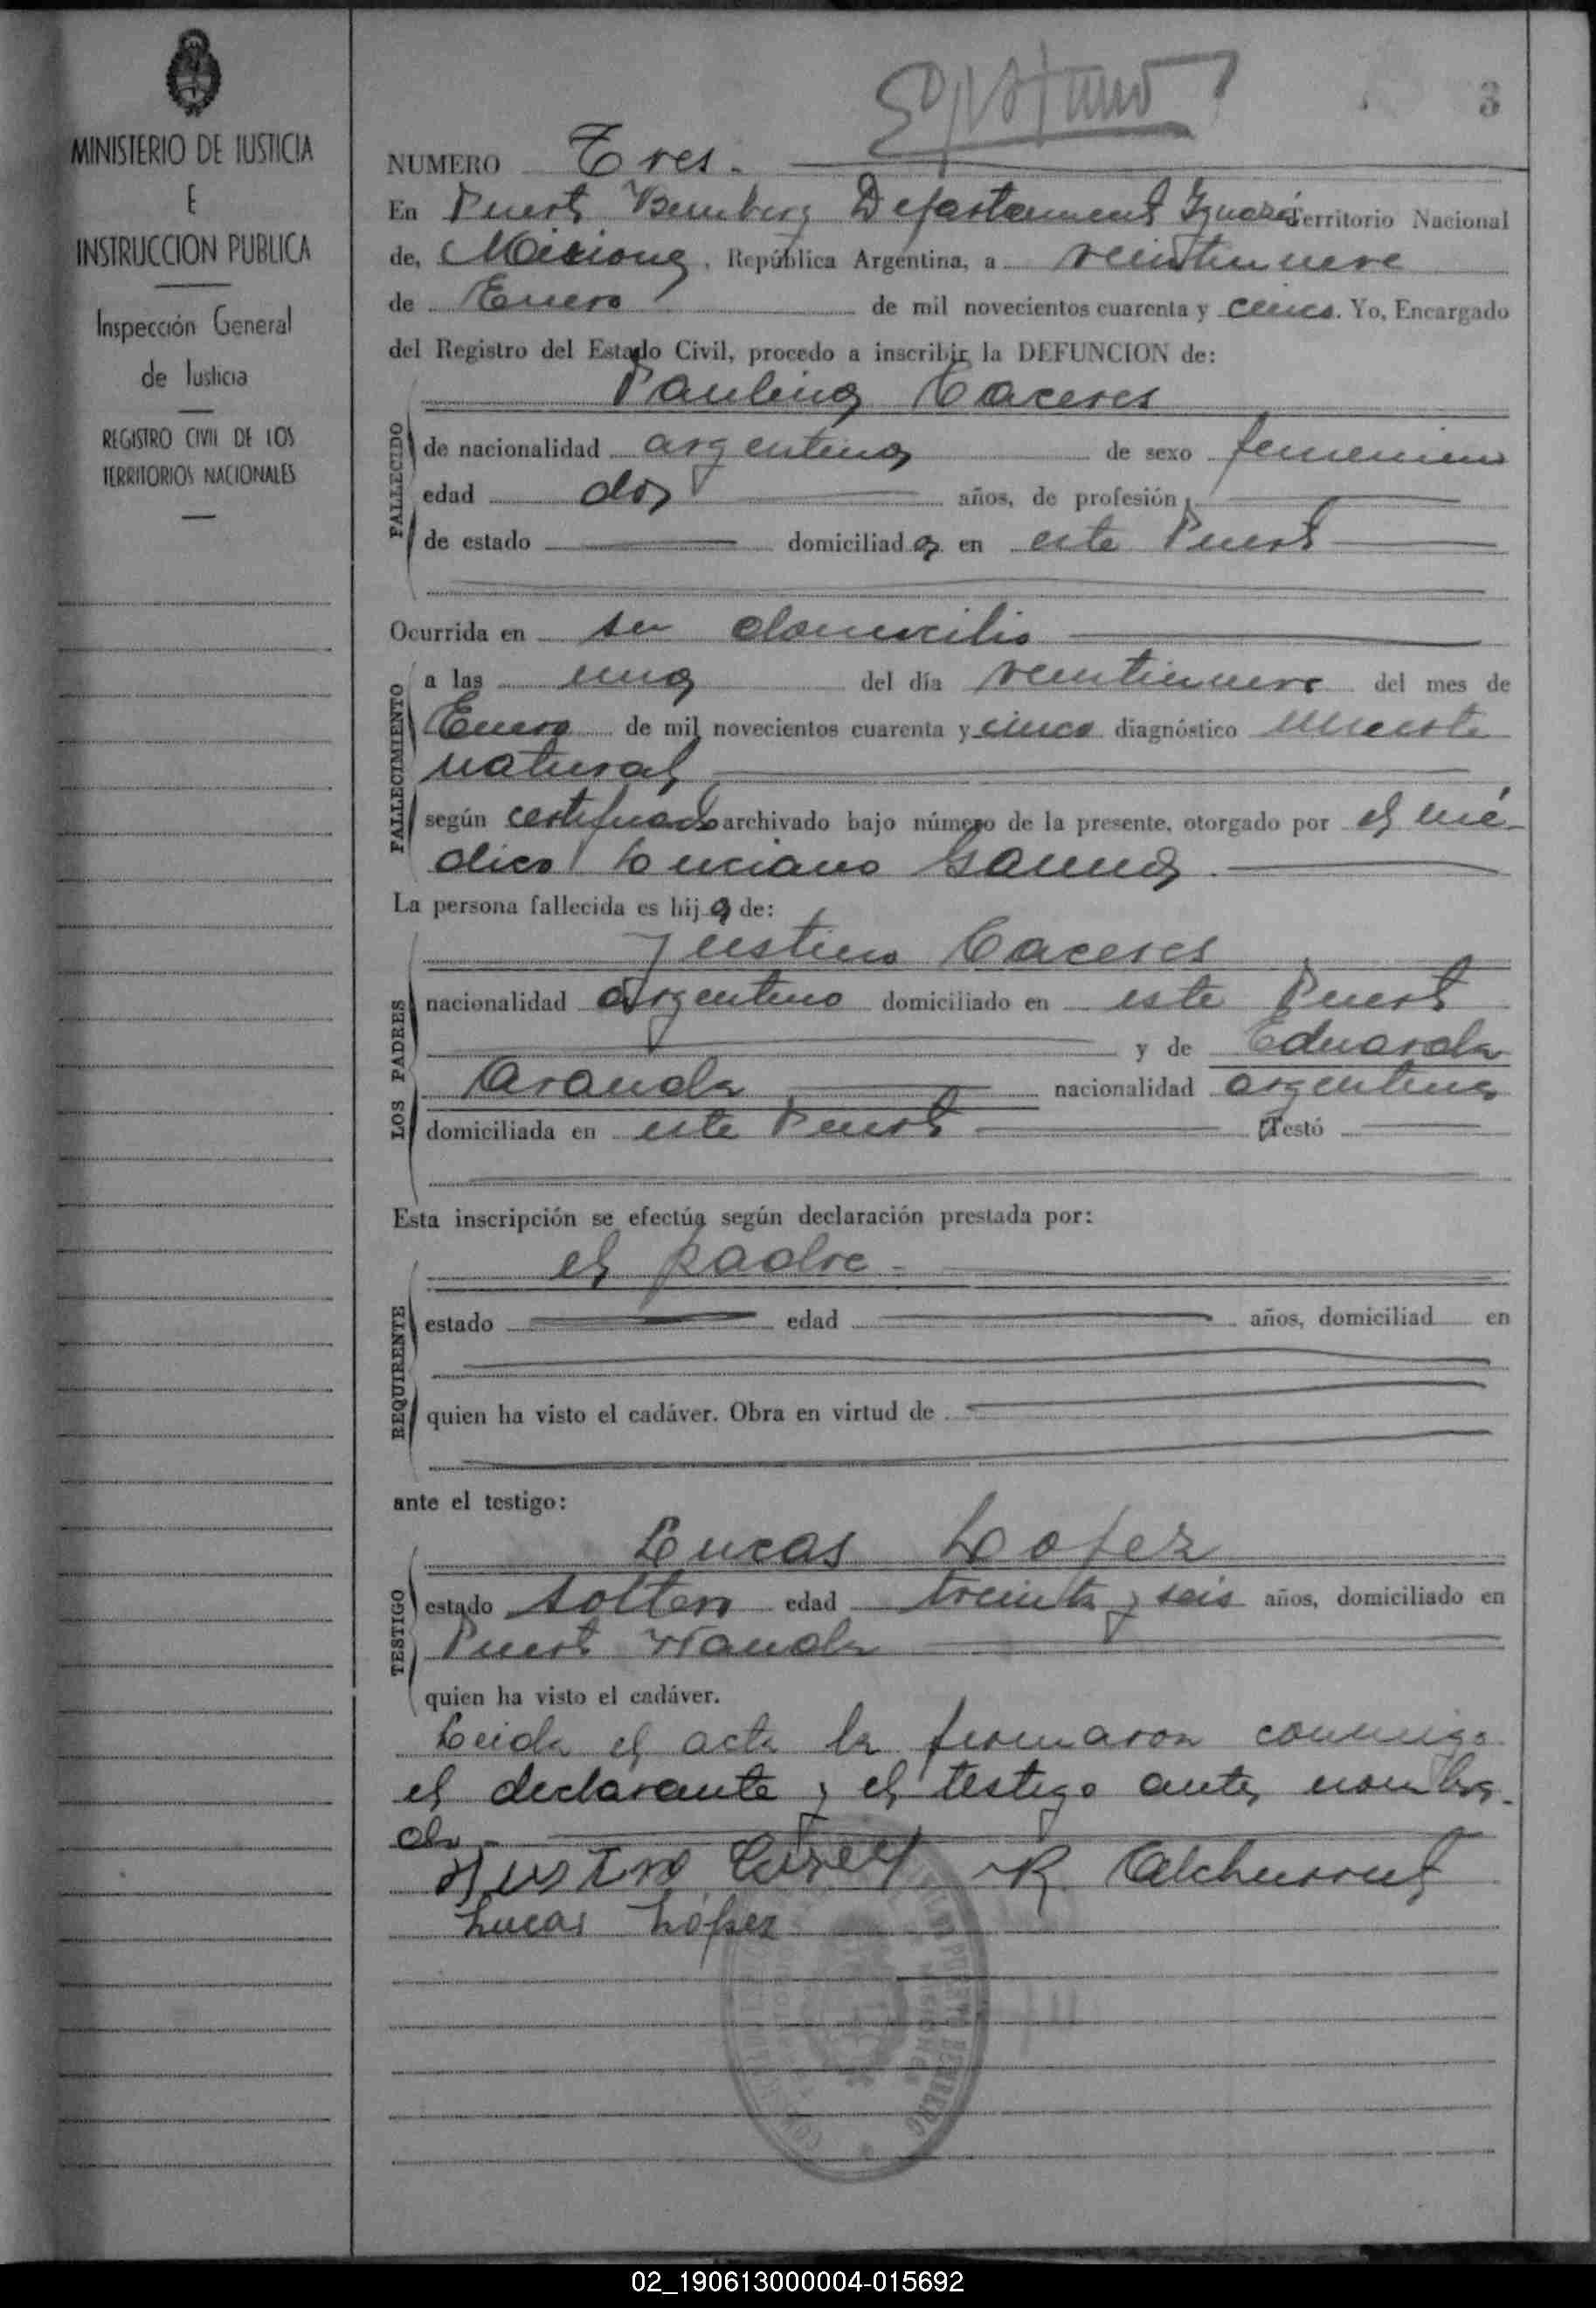 MINISTERIO DE JUSTICIA
E
INSTRUCCION PUBLICA
Inspección General
de Justicia
REGISTRO CIVIL DE LOS
TERRITORIOS NACIONALES
3
NUMERO Tres.
En Puerto Bemberg Departamento Iguazú Territorio Nacional
de, Misiones, República Argentina, a veintinueve
de Enero de mil novecientos cuarenta y cinco. Yo, Encargado
del Registro del Estado Civil, procedo a inscribir la DEFUNCION de:
Paulina Caceres
FALLECIDO
de nacionalidad argentina de sexo femenino
edad dos años, de profesión
de estado domiciliada en este Puerto
Ocurrida en su domicilio
FALLECIMIENTO
a las una del día veintinueve del mes de
Enero de mil novecientos cuarenta y cinco diagnóstico muerte
natural
según certificado archivado bajo número de la presente, otorgado por el mé-
dico Luciano
La persona fallecida es hija de:
LOS PADRES
Justino Caceres
nacionalidad argentino domiciliado en este Puerto
y de Eduarda
Aranda nacionalidad argentina
domiciliada en este Puerto Testó
Esta inscripción se efectúa según declaración prestada por:
REQUIRENTE
el padre.
estado edad años, domiciliad en
quien ha visto el cadáver. Obra en virtud de
ante el testigo:
TESTIGO
Lucas Lopez
estado soltero edad treinta y seis años, domiciliado en
Puerto Wanda
quien ha visto el cadáver.
Leida el acta la firmaron conmigo
el declarante y el testigo antes nombra-
do.-
Lucas López
02_190613000004-015692